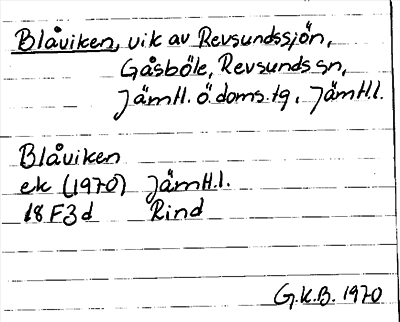 Blåviken, vik av Revsundssjön,
Gåsböle, Revsunds sn,
Jämtl. ö doms. tg, Jämtl.l.
Blåviken
ek (1970) Jämtl.l.
18 F3d Rind
G.K.B. 1970